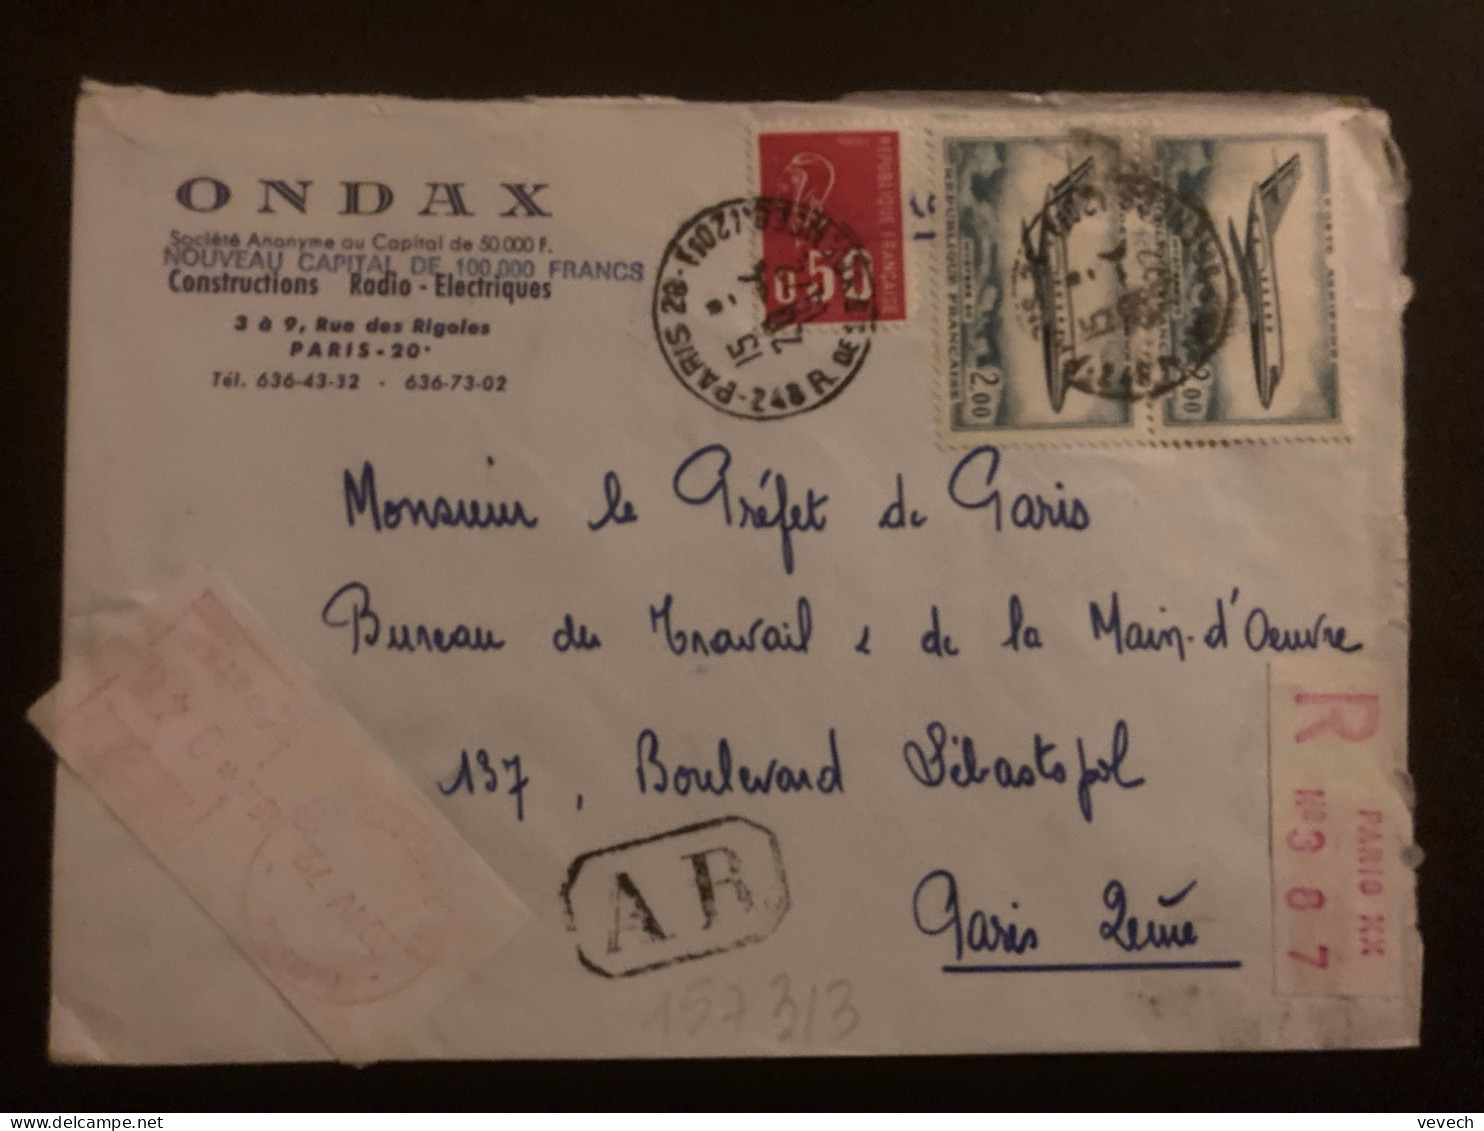 ONDAX
Société Anonyme au Capital de 50.000 F.
NOUVEAU CAPITAL DE 100.000 FRANCS
Constructions Radio - Electriques
3 à 9, Rue des Rigoles
PARIS-20e
Tél. 636-43-32 - 636-73-02
REPUBLIQUE FRANCAISE
0,50
REPUBLIQUE FRANÇAISE
2,00
POSTE AERIENNE
2,00
PARIS 20
15
248 R. DE
Monsieur le Préfet de Paris
Bureau du Travail & de la Main-d'Oeuvre
137, Boulevard Sébastopol
Paris 2ème
AR
R
PARIS XX
Nº 3 8 7
1573/3
vevech